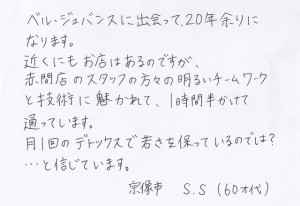 ベル・ジュバンスに出会って、20年余りに
なります。
近くにも お店はあるのですが、
赤間店のスタッフの方々の明るいチームワーク
と技術に魅かれて、1時間半かけて
通っています。
月1回のデトックスで若さを保っているのでは?
…と信じています。
宗像市 S.S (60才代)